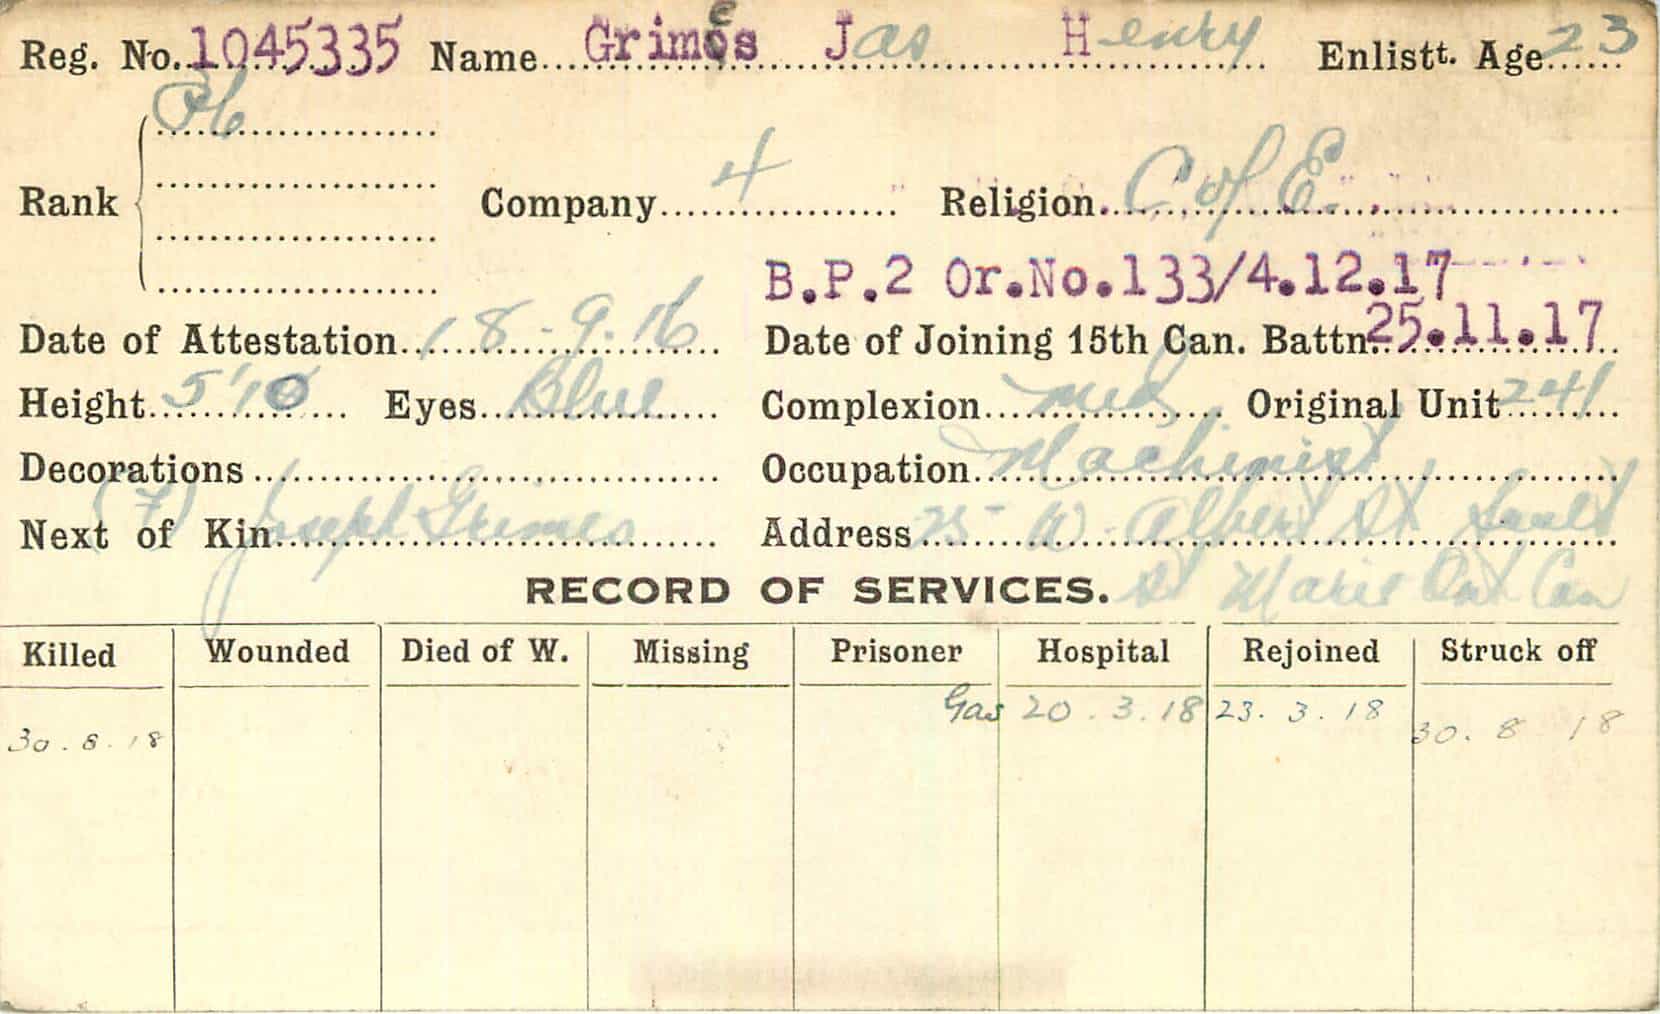 Reg. No. 1045335 Name Grimes Jas Henry Enlistt. Age 23
Pte
Rank Company 4 Religion C of E.
B.P.2 Or.No.133/4.12.17
Date of Attestation 18-9-16 Date of Joining 15th Can. Battn. 25.11.17
Height 5'10 Eyes Blue Complexion Med Original Unit 241
Decorations Occupation Machinist
(F) Next of Kin Joseph Grimes Address 25 W. Albert St Sault
RECORD OF SERVICES. St Marie Ont Can
Killed Wounded Died of W. Missing Prisoner Hospital Rejoined Struck off
Gas 20.3.18 23.3.18
30.8.18 30.8 18